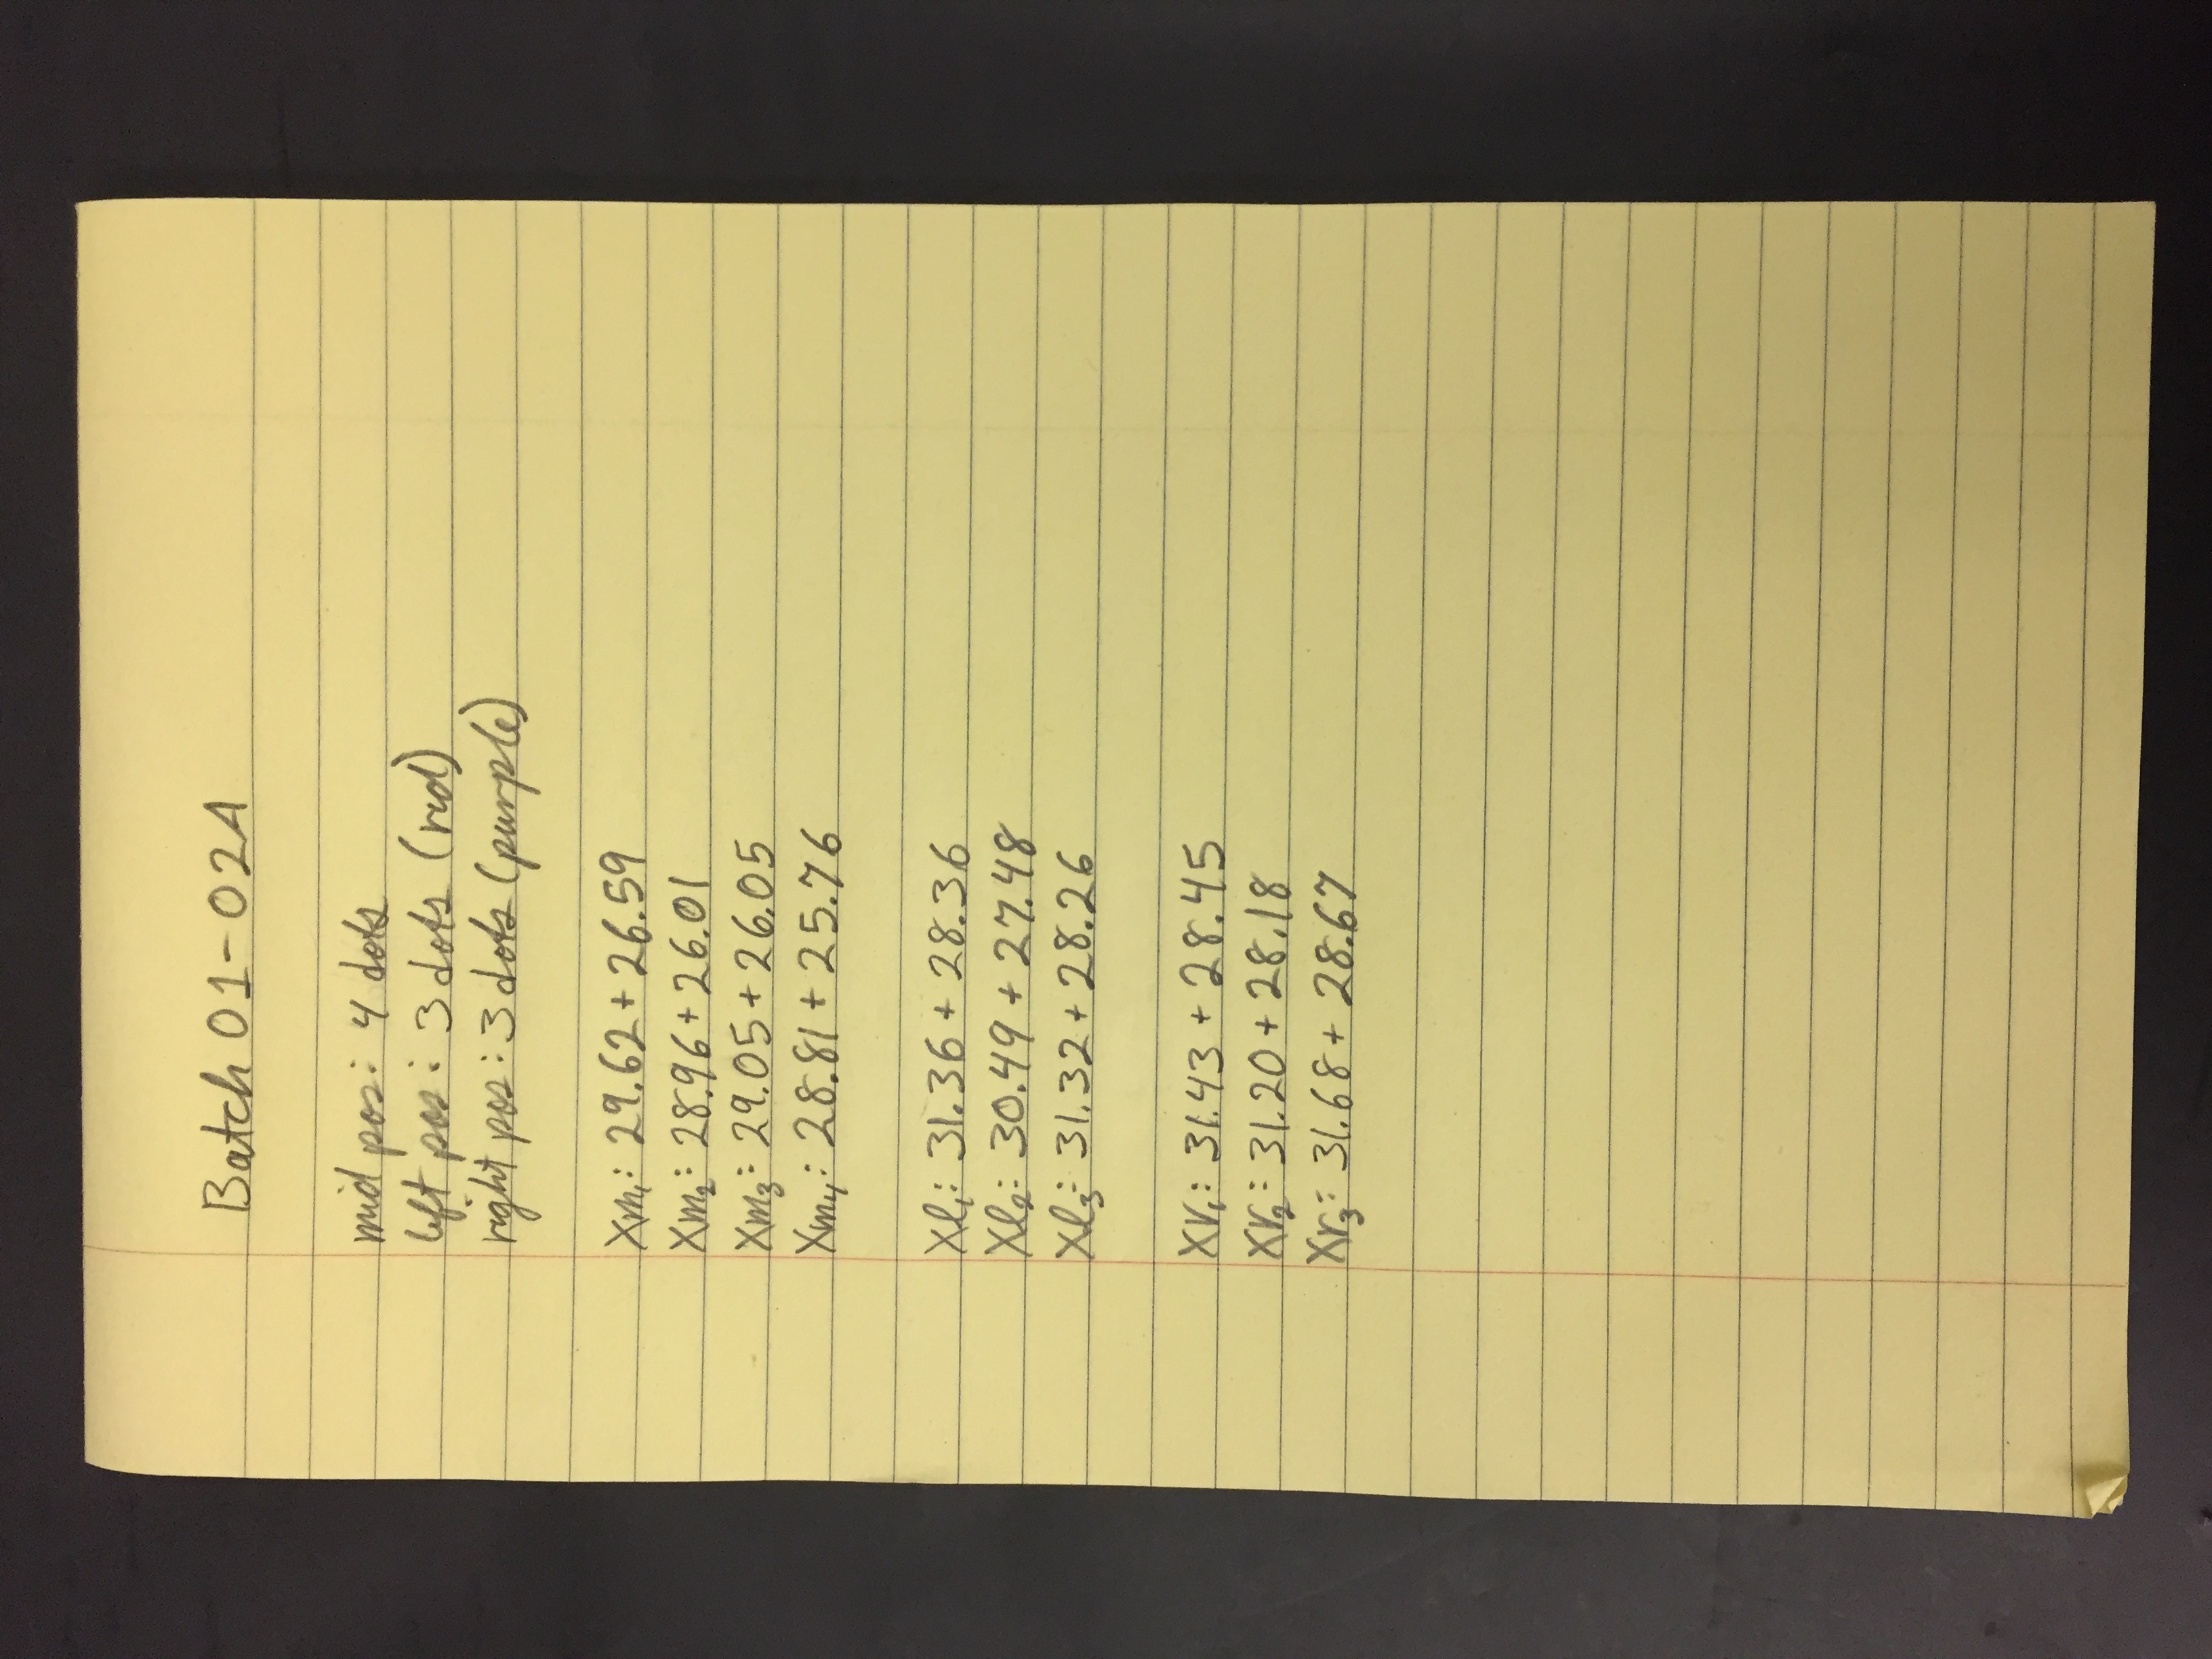 Batch 01-02A
mid pos: 4 dots
left pos: 3 dots (red)
right pos: 3 dots (purple)
Xm₁: 29.62 + 26.59
Xm₂: 28.96 + 26.01
Xm₃: 29.05 + 26.05
Xm₄: 28.81 + 25.76
Xl₁: 31.36 + 28.36
Xl₂: 30.49 + 27.48
Xl₃: 31.32 + 28.26
Xr₁: 31.43 + 28.45
Xr₂: 31.20 + 28.18
Xr₃: 31.68 + 28.67